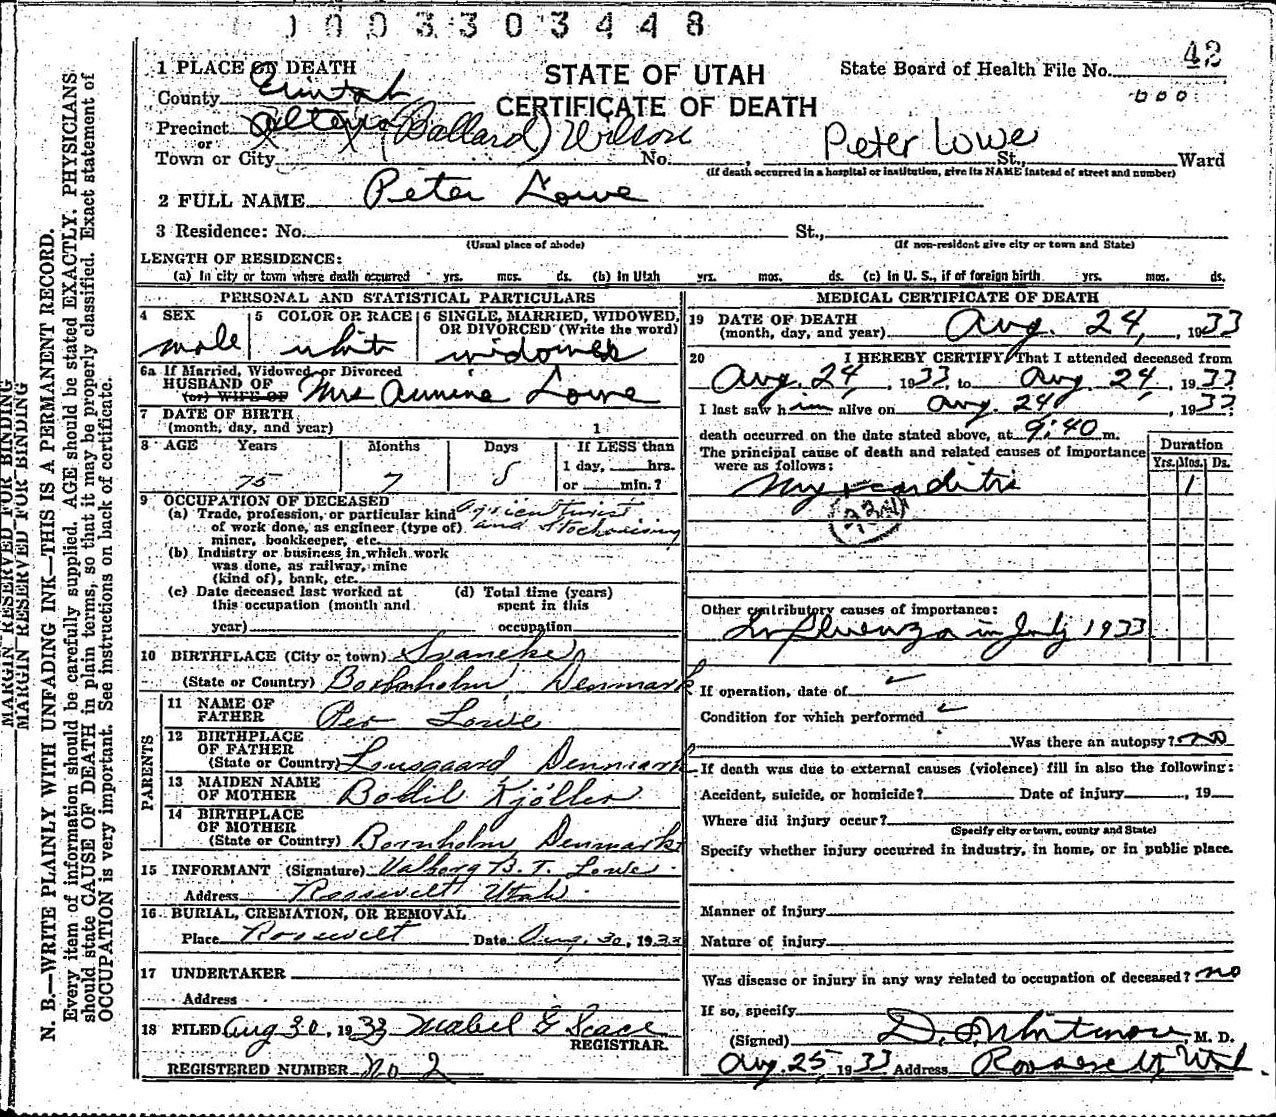 1003303448
42
1 PLACE OF DEATH
STATE OF UTAH
State Board of Health File No.
County Uintah
CERTIFICATE OF DEATH
600
Precinct (Ballard) Wilson
or
Town or City No. , Peter Lowe St., Ward
(If death occurred in a hospital or institution, give its NAME instead of street and number)
2 FULL NAME Peter Lowe
3 Residence: No. St.,
(Usual place of abode) (If non-resident give city or town and State)
LENGTH OF RESIDENCE:
(a) In city or town where death occurred yrs. mos. ds. (b) In Utah yrs. mos. ds. (c) In U. S., if of foreign birth yrs. mos. ds.
PERSONAL AND STATISTICAL PARTICULARS
4 SEX 5 COLOR OR RACE 6 SINGLE, MARRIED, WIDOWED, OR DIVORCED (Write the word)
male white widower
6a If Married, Widowed or Divorced
HUSBAND OF Mrs Lowe
(or) WIFE OF
7 DATE OF BIRTH
(month, day, and year) 1
8 AGE Years Months Days If LESS than
1 day, hrs.
75 7 5 or min.?
9 OCCUPATION OF DECEASED
(a) Trade, profession, or particular kind Agriculturist
of work done, as engineer (type of) and Stockraising
miner, bookkeeper, etc.
(b) Industry or business in which work
was done, as railway, mine
(kind of), bank, etc.
(c) Date deceased last worked at (d) Total time (years)
this occupation (month and spent in this
year) occupation
10 BIRTHPLACE (City or town) Svaneke
(State or Country) Bornholm, Denmark
PARENTS
11 NAME OF
FATHER Per Lowe
12 BIRTHPLACE
OF FATHER
(State or Country) Lousgaard Denmark
13 MAIDEN NAME
OF MOTHER Bodil Kjöller
14 BIRTHPLACE
OF MOTHER
(State or Country) Bornholm Denmark
15 INFORMANT (Signature) Valborg B. T. Lowe
Address Roosevelt Utah
16 BURIAL, CREMATION, OR REMOVAL
Place Roosevelt Date Aug. 30, 1933
17 UNDERTAKER
Address
18 FILED Aug 30, 1933 Mabel G Scace
REGISTRAR.
REGISTERED NUMBER No 2
MEDICAL CERTIFICATE OF DEATH
19 DATE OF DEATH
(month, day, and year) Aug. 24, 1933
20 I HEREBY CERTIFY, That I attended deceased from
Aug. 24, 1933, to Aug 24, 1933
I last saw him alive on Aug. 24, 1933
death occurred on the date stated above, at 9:40 m.
The principal cause of death and related causes of importance
were as follows:
Duration
Yrs. Mos. Ds.
Myocarditis 1
Other contributory causes of importance:
Influenza in July 1933
If operation, date of
Condition for which performed
Was there an autopsy? no
If death was due to external causes (violence) fill in also the following:
Accident, suicide, or homicide? Date of injury , 19
Where did injury occur?
(Specify city or town, county and State)
Specify whether injury occurred in industry, in home, or in public place.
Manner of injury
Nature of injury
Was disease or injury in any way related to occupation of deceased? no
If so, specify
(Signed) Whitmore, M. D.
Aug. 25, 1933 Address Roosevelt Utah.
MARGIN RESERVED FOR BINDING
MARGIN RESERVED FOR BINDING
N. B.—WRITE PLAINLY WITH UNFADING INK—THIS IS A PERMANENT RECORD.
Every item of information should be carefully supplied. AGE should be stated EXACTLY. PHYSICIANS
should state CAUSE OF DEATH in plain terms, so that it may be properly classified. Exact statement of
OCCUPATION is very important. See instructions on back of certificate.